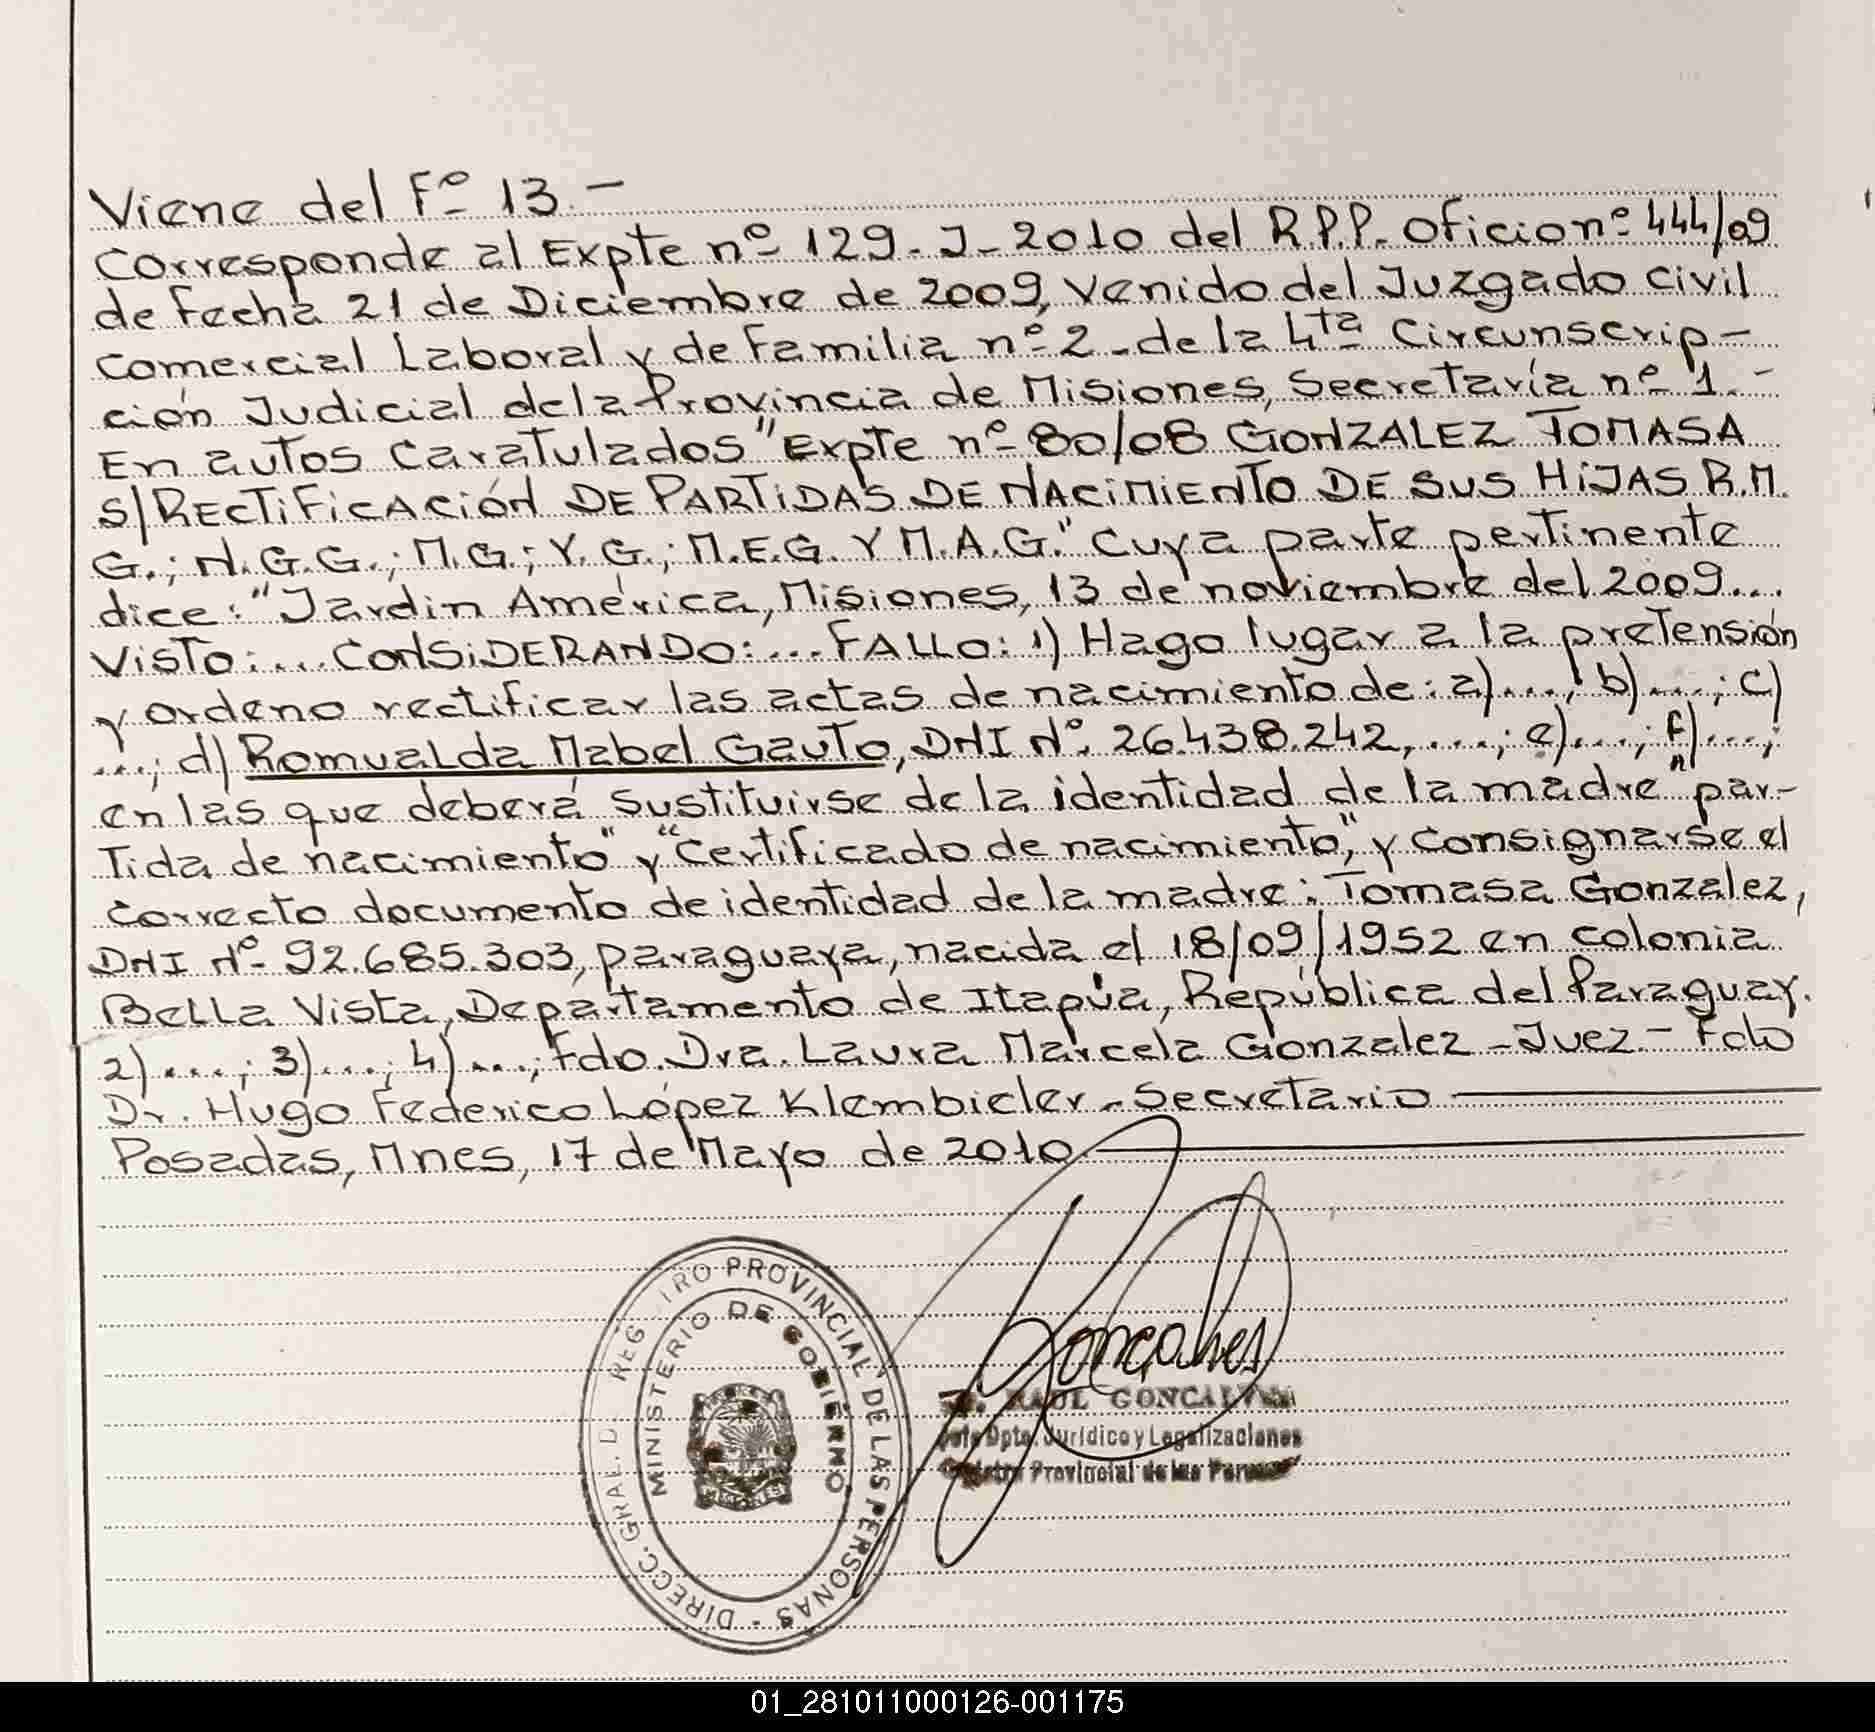 Viene del Fº 13.-
Corresponde al Expte nº 129-J-2010 del R.P.P. Oficio nº 444/09
de Fecha 21 de Diciembre de 2009, Venido del Juzgado Civil
Comercial Laboral y de Familia nº 2 - de la 4ta Circunscrip-
ción Judicial de la Provincia de Misiones, Secretaría nº 1.-
En autos Caratulados "Expte nº 80/08 GONZALEZ TOMASA
S/RECTIFICACIÓN DE PARTIDAS DE NACIMIENTO DE SUS HIJAS R.M.
G.; N.G.G.; M.G.; Y.G.; M.E.G. Y M.A.G." Cuya parte pertinente
dice: "Jardin América, Misiones, 13 de noviembre del 2009...
VISTO:... CONSIDERANDO:... FALLO: 1) Hago lugar a la pretensión
y ordeno rectificar las actas de nacimiento de: a)...; b)...; c)
...; d) Romualda Mabel Gauto, DNI Nº. 26.438.242, ...; e)...; f)...;
en las que deberá sustituirse de la identidad de la madre "par-
tida de nacimiento" y "Certificado de nacimiento", y consignarse el
correcto documento de identidad de la madre: Tomasa Gonzalez,
DNI Nº- 92.685.303, paraguaya, nacida el 18/09/1952 en colonia
Bella Vista, Departamento de Itapúa, República del Paraguay.
2)...; 3)...; 4)...; Fdo. Dra. Laura Marcela Gonzalez - Juez - Fdo
Dr. Hugo Federico López Klembieler - Secretario
Posadas, Mnes, 17 de Mayo de 2010
DIRECC. GRAL. D REG TRO PROVINCIAL DE LAS PERSONAS -
MINISTERIO DE GOBIERNO
MISIONES
Goncalves
RAUL GONCALVES
Jefe Dpto. Jurídico y Legalizaciones
Registro Provincial de las Personas
01_281011000126-001175